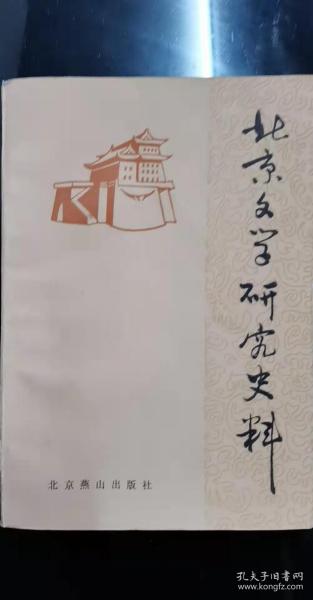 北京文学研究史料
北京燕山出版社
孔夫子旧书网
www.kongfz.com